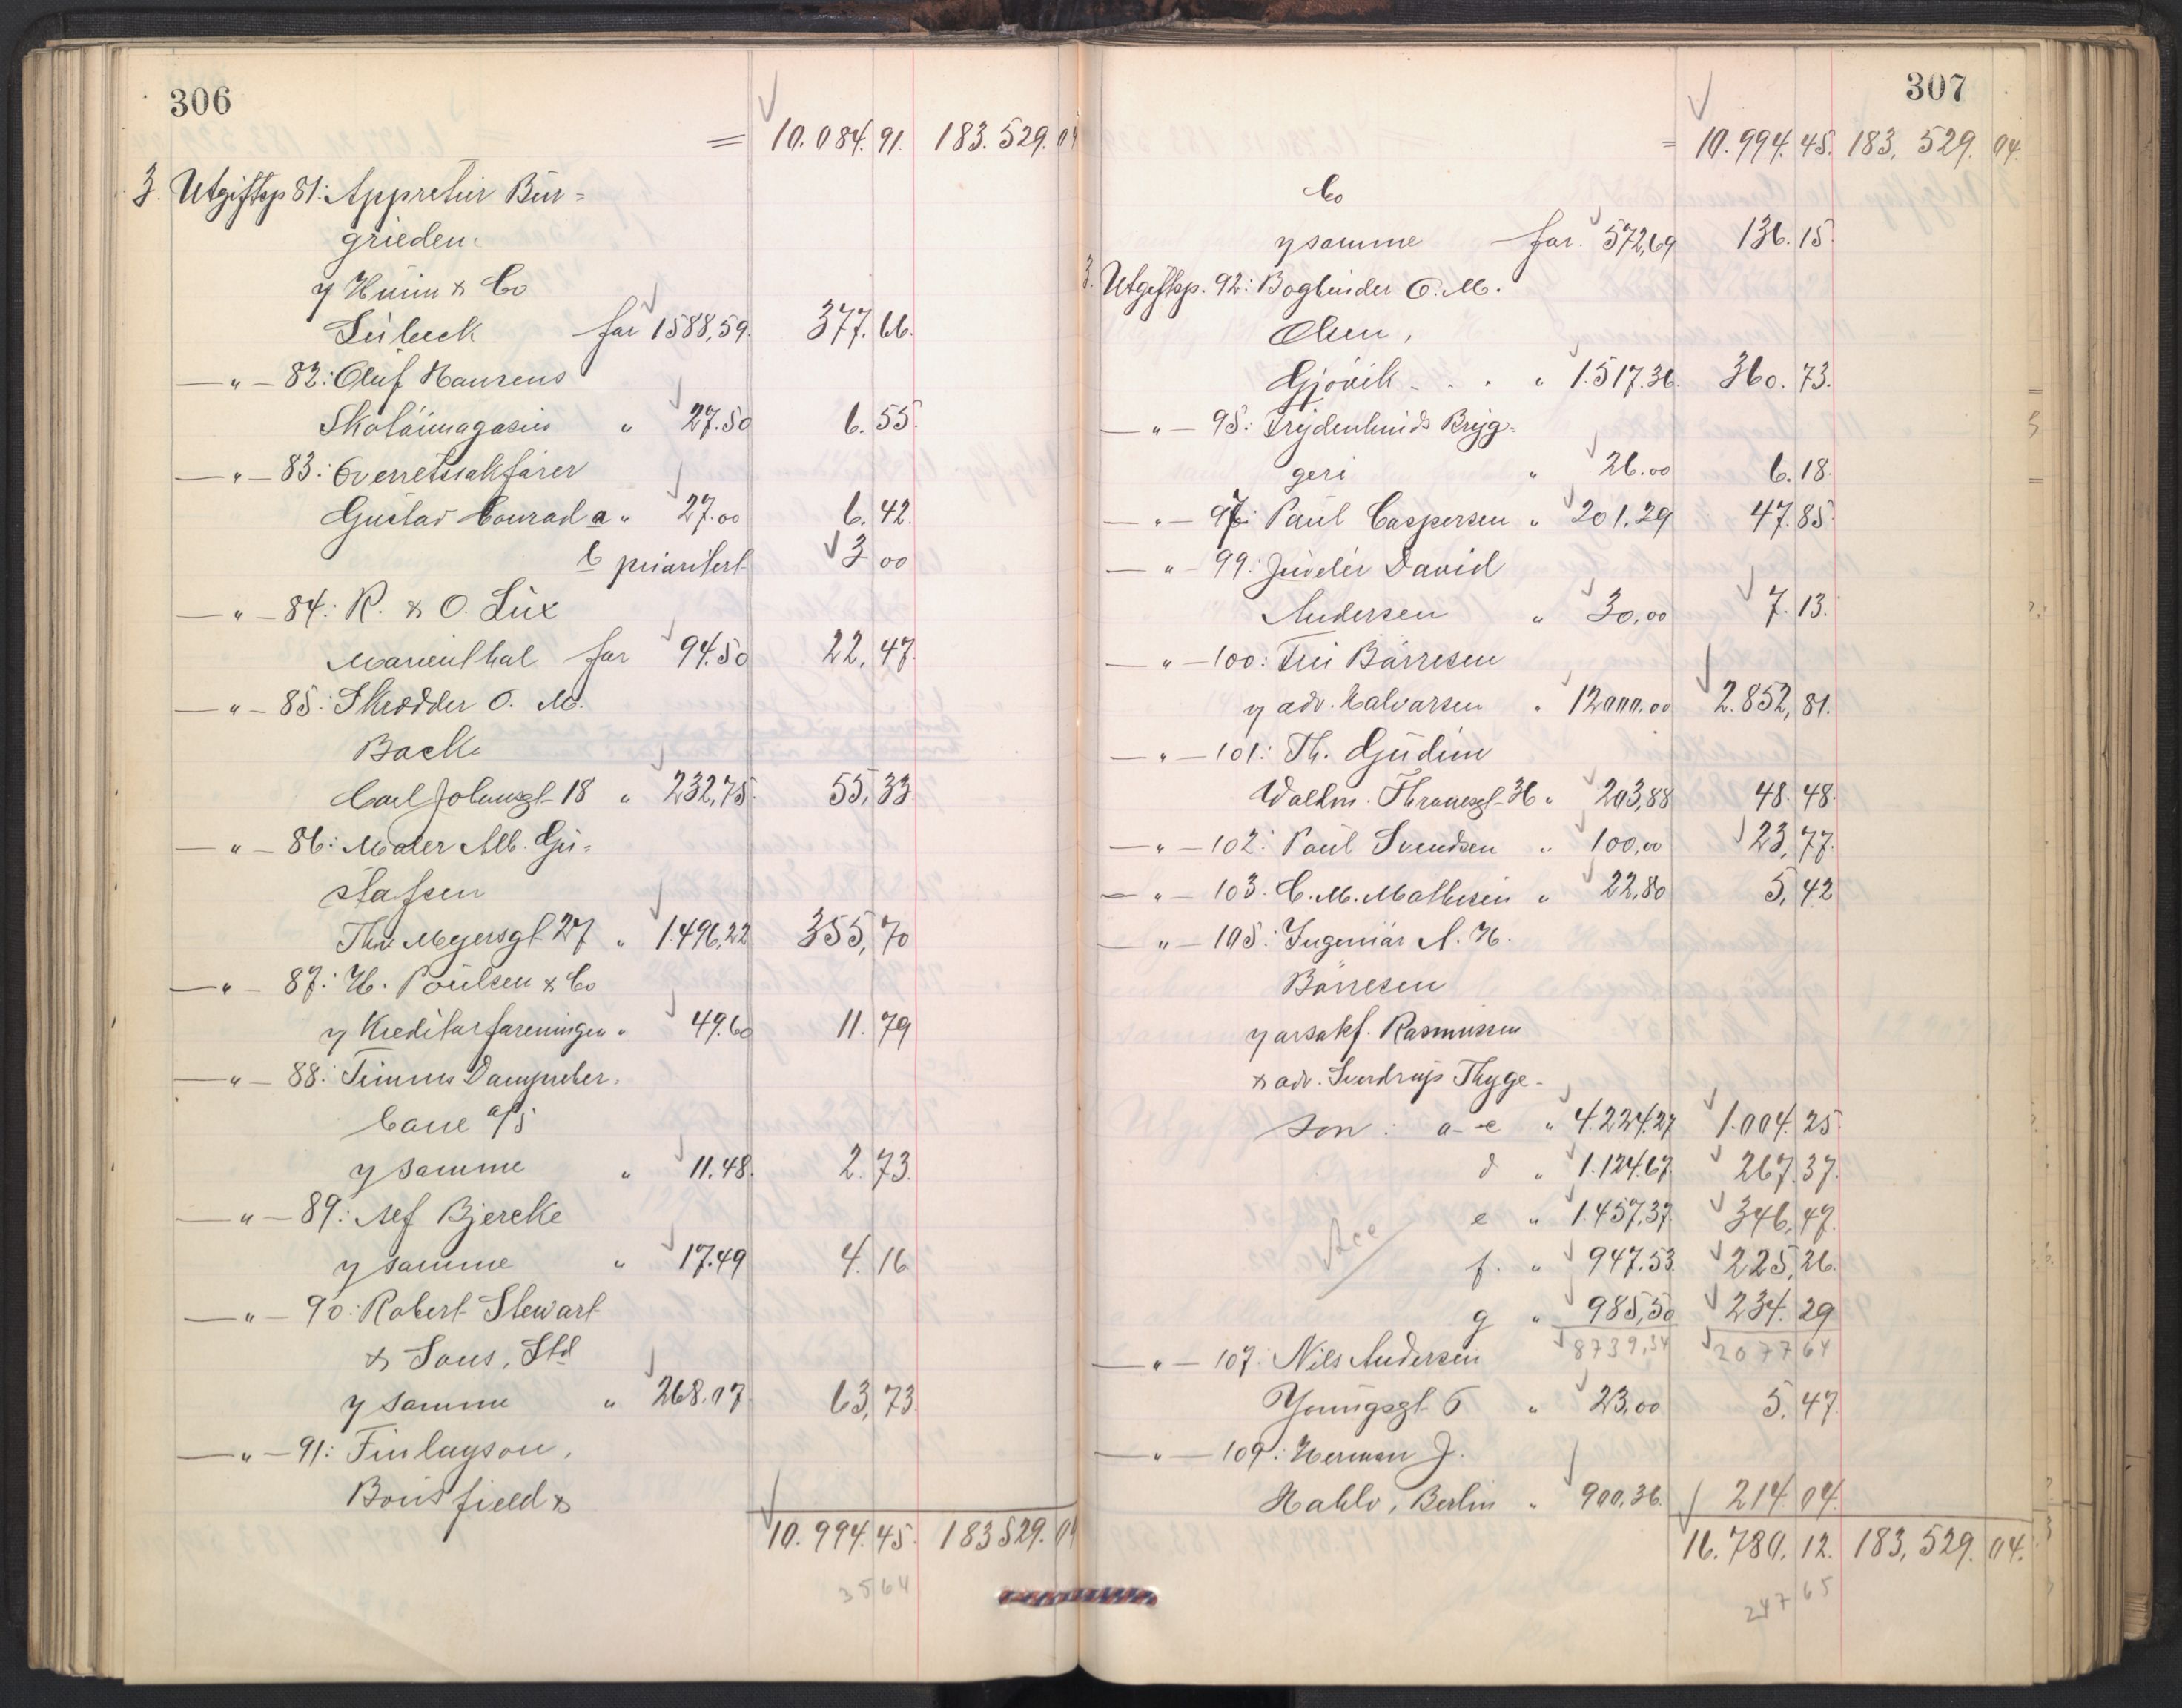 306
= 10.084.91. 183.529.04
3. Utgiftsp 81: Appretur Bur=
grieden
y Huim & Co
Lübeck for 1588,59. 377.66.
—"— 82: Oluf Hansens
Skotøimagasin " 27.50 6.55.
—"— 83: Overretssakfører
Gustav Conrad a " 27.00 6.42.
b prioritert 3 00
—"— 84: R. & O. Lux
Marienthal for 94.50 22,47.
—"— 85: Skrædder O. M.
Backe
Carl Johansgt 18 " 232,75. 55,33.
—"— 86: Maler Alb. Gu=
stafsen
Thv Meyersgt 27 " 1.496,22 355,70
—"— 87: H. Poulsen & Co
y Kreditorforeningen " 49.60 11.79
—"— 88: Timms Dampreber=
bane a/s
y samme " 11.48. 2.73.
—"— 89: Alf Bjercke
y samme " 17.49 4.16
—"— 90: Robert Stewart
& Sons, Ltd
y samme " 268.07. 63,73.
—"— 91: Finlayson,
Bousfield &
10.994.45. 183529.04
3564
307
= 10.994.45. 183,529.04.
Co
y samme for. 572,69 136.15.
3. Utgiftsp. 92: Bogbinder O. M.
Olsen,
Gjøvik . . . " 1.517.36. 360.73.
—"— 95: Frydenlunds Bryg=
geri " 26.00 6.18.
—"— 97: Paul Caspersen " 201.29 47.85.
—"— 99: Juvelér David
Andersen " 30,00 7.13.
—"— 100: Fru Børresen
y adv. Halvorsen " 12000.00 2.852,81.
—"— 101: Th. Gudim
Waldm. Thranesgt 36 " 203,88 48.48.
—"— 102: Paul Svendsen " 100,00 23,77.
—"— 103. C. M. Mathisen " 22,80 5,42
—"— 105: Ingeniør A. H.
Børresen
y orsakf. Rasmussen
& adv. Sverdrup Thyge-
son: a-c " 4.224.27 1.004.25.
d " 1.124.67. 267.37.
e " 1.457,37. 346,47.
f. " 947.53. 225,26.
g " 985,50 234.29
8739,34 2077 64
—"— 107: Nils Andersen
Youngsgt 6 " 23,00 5,47.
—"— 109: Herman J.
Hahlo, Berlin " 900,36. 214.04.
16.780.12. 183,529.04.
247 65